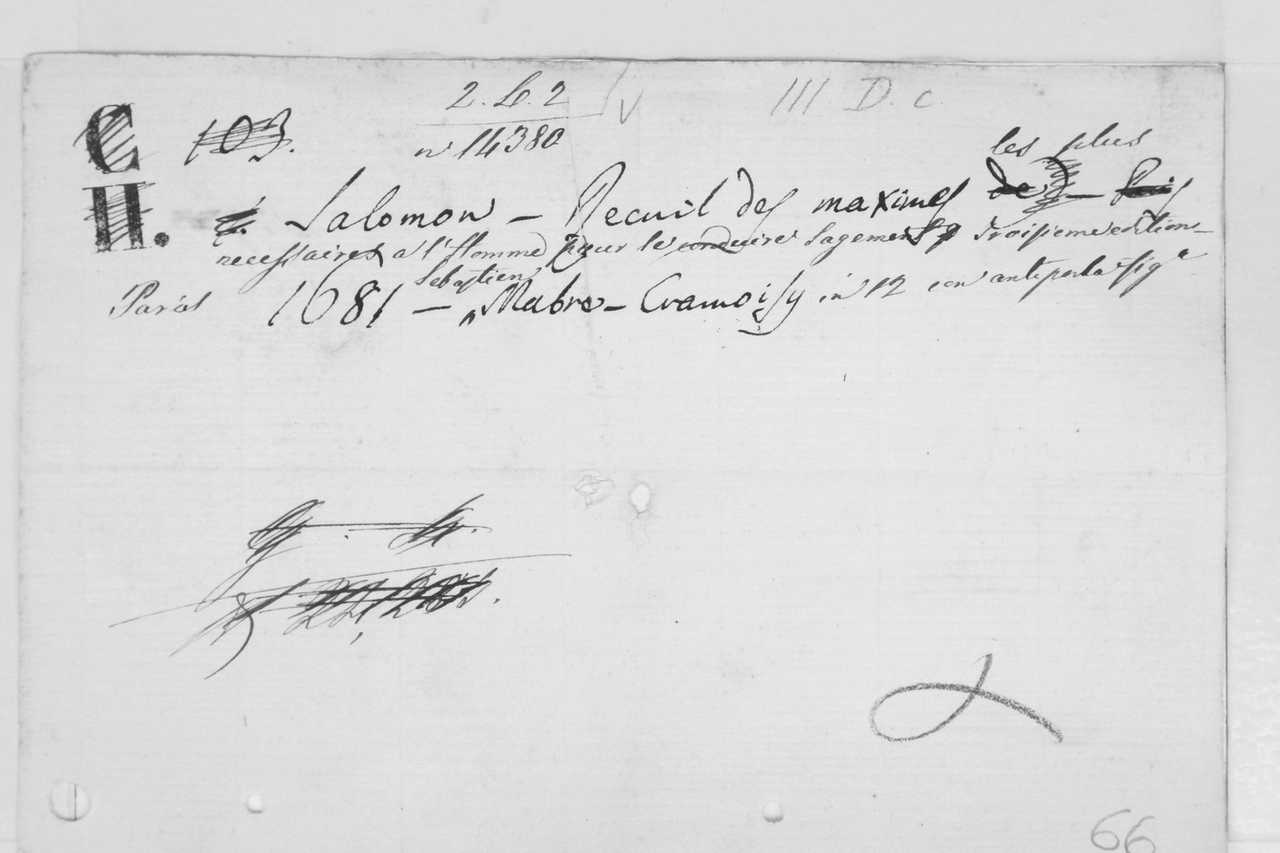 2. L. 2
III D. c.
C 103.
n 14380
les plus
H. Salomon - Recuil des maximes
necessaires a l'Homme pour se conduire sagement Troisieme edition
Sebastien
Paris 1681 - Mabre - Cramoisy in 12 con antiporta fig^a
66